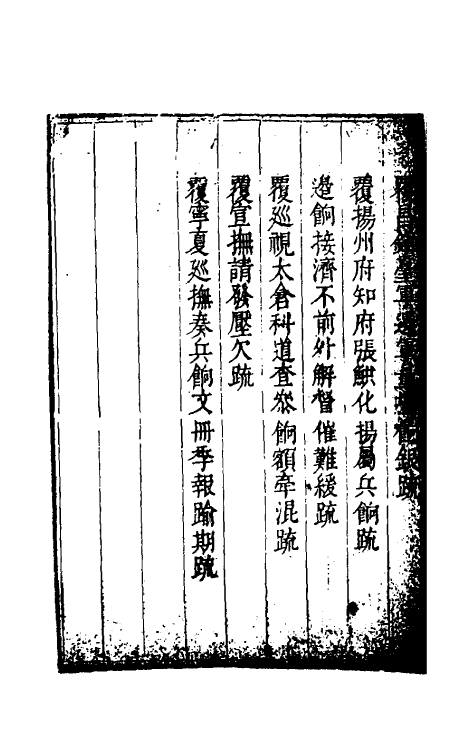 覆
銀疏
覆揚州府知府張鯤化揚屬兵餉疏
邊餉接濟不前外解督催難緩疏
覆巡視太倉科道查叅餉額牽混疏
覆宣撫請發壓欠疏
覆寧夏巡撫奏兵餉文冊季報踰期疏